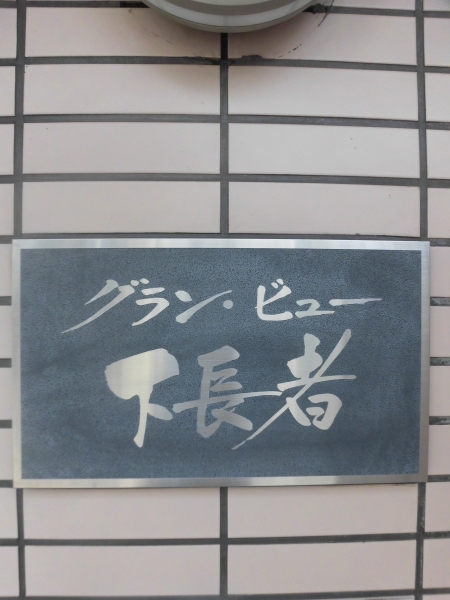 グラン・ビュー
下長者